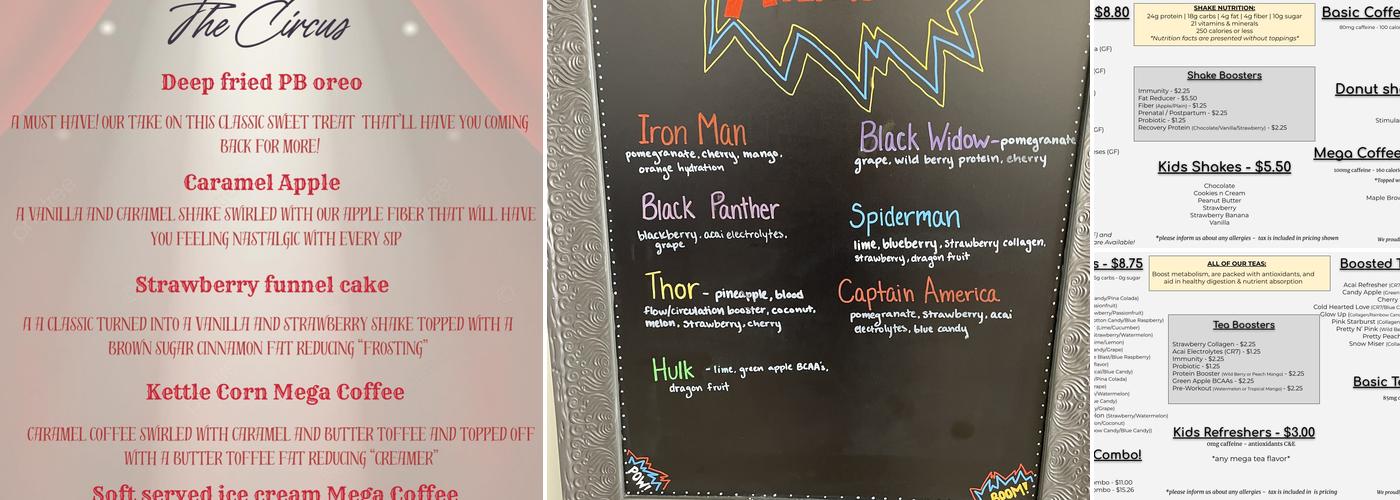 The Circus
Deep fried PB oreo
A MUST HAVE! OUR TAKE ON THIS CLASSIC SWEET TREAT THAT'LL HAVE YOU COMING
BACK FOR MORE!
Caramel Apple
A VANILLA AND CARAMEL SHAKE SWIRLED WITH OUR APPLE FIBER THAT WILL HAVE
YOU FEELING NASTALGIC WITH EVERY SIP
Strawberry funnel cake
A A CLASSIC TURNED INTO A VANILLA AND STRAWBERRY SHAKE TOPPED WITH A
BROWN SUGAR CINNAMON FAT REDUCING "FROSTING"
Kettle Corn Mega Coffee
CARAMEL COFFEE SWIRLED WITH CARAMEL AND BUTTER TOFFEE AND TOPPED OFF
WITH A BUTTER TOFFEE FAT REDUCING "CREAMER"
Soft served ice cream Mega Coffee
Iron Man
pomegranate, cherry, mango,
orange hydration
Black Panther
blackberry, acai electrolytes,
grape
Thor - pineapple, blood
flow/circulation booster, coconut,
melon, strawberry, cherry
Hulk - lime, green apple BCAA's,
dragon fruit
Black Widow - pomegranate
grape, wild berry protein, cherry
Spiderman
lime, blueberry, strawberry collagen,
strawberry, dragon fruit
Captain America
pomegranate, strawberry, acai
electrolytes, blue candy
POW!
BOOM!
$8.80
(GF)
(GF)
(GF)
SHAKE NUTRITION:
24g protein | 18g carbs | 4g fat | 4g fiber | 10g sugar
21 vitamins & minerals
250 calories or less
*Nutrition facts are presented without toppings*
Shake Boosters
Immunity - $2.25
Fat Reducer - $5.50
Fiber (Apple/Plain) - $1.25
Prenatal / Postpartum - $2.25
Probiotic - $1.25
Recovery Protein (Chocolate/Vanilla/Strawberry) - $2.25
Kids Shakes - $5.50
Chocolate
Cookies n Cream
Peanut Butter
Strawberry
Strawberry Banana
Vanilla
and
are Available!
*please inform us about any allergies - tax is included in pricing shown
Basic
80mg caffeine - 100
Donut
Mega Coffee
100mg caffeine - 160
*Topped
Maple
We
- $8.75
carbs - 0g sugar
ALL OF OUR TEAS:
Boost metabolism, are packed with antioxidants, and
aid in healthy digestion & nutrient absorption
Tea Boosters
Strawberry Collagen - $2.25
Acai Electrolytes (CR7) - $1.25
Immunity - $2.25
Probiotic - $1.25
Protein Booster (Wild Berry or Peach Mango) - $2.25
Green Apple BCAAs - $2.25
Pre-Workout (Watermelon or Tropical Mango) - $2.25
Kids Refreshers - $3.00
0mg caffeine - antioxidants C&E
*any mega tea flavor*
Combo!
- $11.00
- $15.26
*please inform us about any allergies - tax is included in pricing
Boosted
Acai Refresher
Candy Apple
Cherry
Cold Hearted Love
Glow Up
Pink Starburst
Pretty N' Pink
Pretty
Snow Miser
Basic
85mg
We